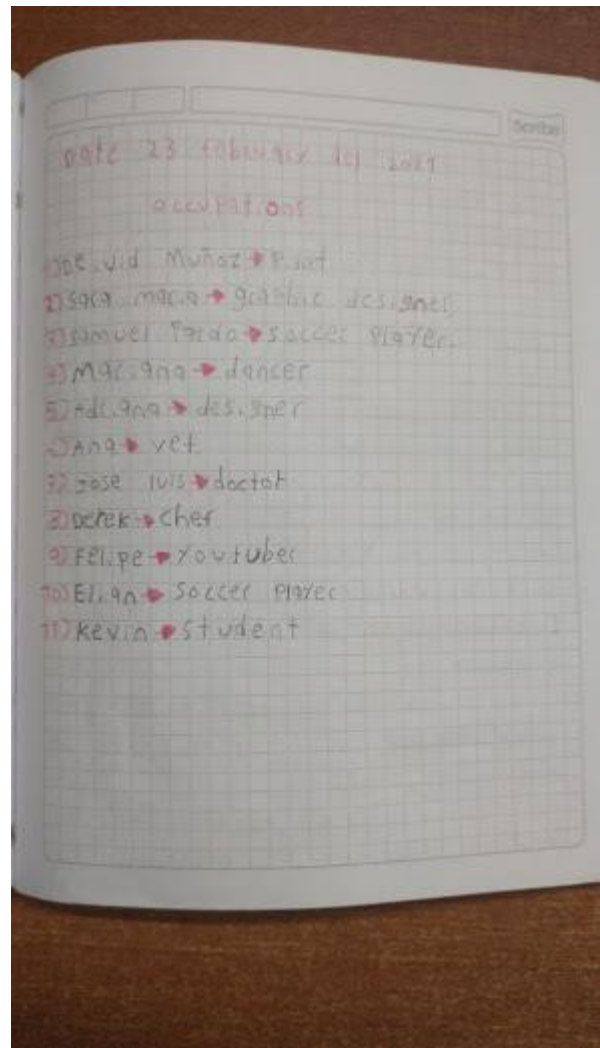 Scribe
Date 23 febuary del 2021
occupations
1) Deivid Muñoz → 
2) Sara maria → graphic designer
3) Samuel Pardo → soccer player.
4) Mariana → dancer
5) Adriana → designer
6) Ana → vet
7) Jose luis → doctor
8) Derek → chef
9) Felipe → Youtuber
10) Elian → Soccer player
11) Kevin → student